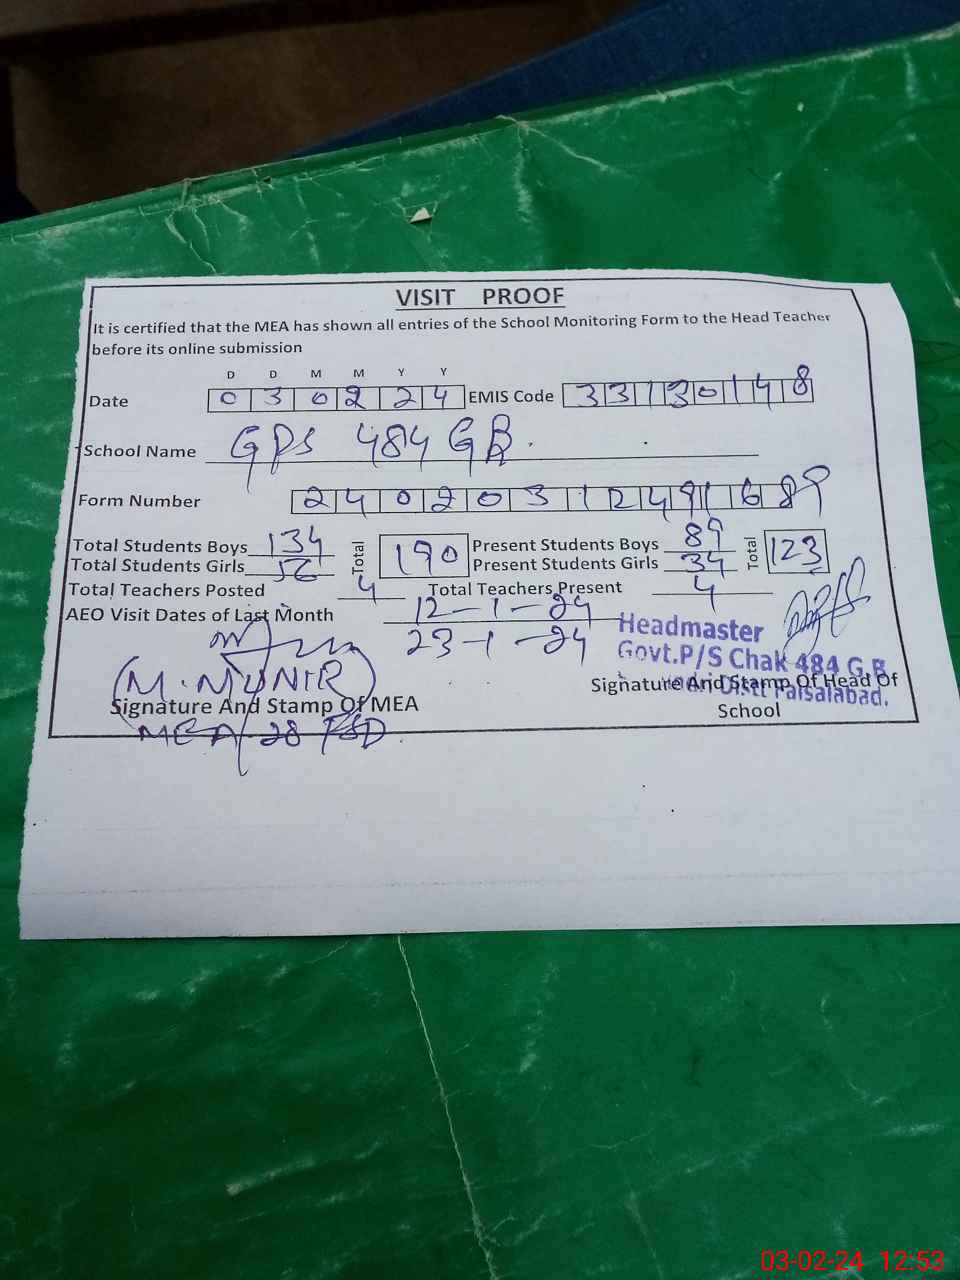 VISIT PROOF
It is certified that the MEA has shown all entries of the School Monitoring Form to the Head Teacher
before its online submission
D D M M Y Y
Date 0 3 0 2 2 4 EMIS Code 3 3 1 3 0 1 4 8
School Name GPS 484 GB.
Form Number 2 4 0 2 0 3 1 2 4 9 1 6 8 9
Total Students Boys 134 Total 190 Present Students Boys 89 Total 123
Total Students Girls 56 Present Students Girls 34
Total Teachers Posted 4 Total Teachers Present 4
AEO Visit Dates of Last Month 12-1-24
23-1-24
Headmaster
Govt.P/S Chak 484 G.B
Distt Faisalabad.
(M.MUNIR)
Signature And Stamp Of MEA
MEA 28 FSD
Signature And Stamp Of Head Of
School
03-02-24 12:53